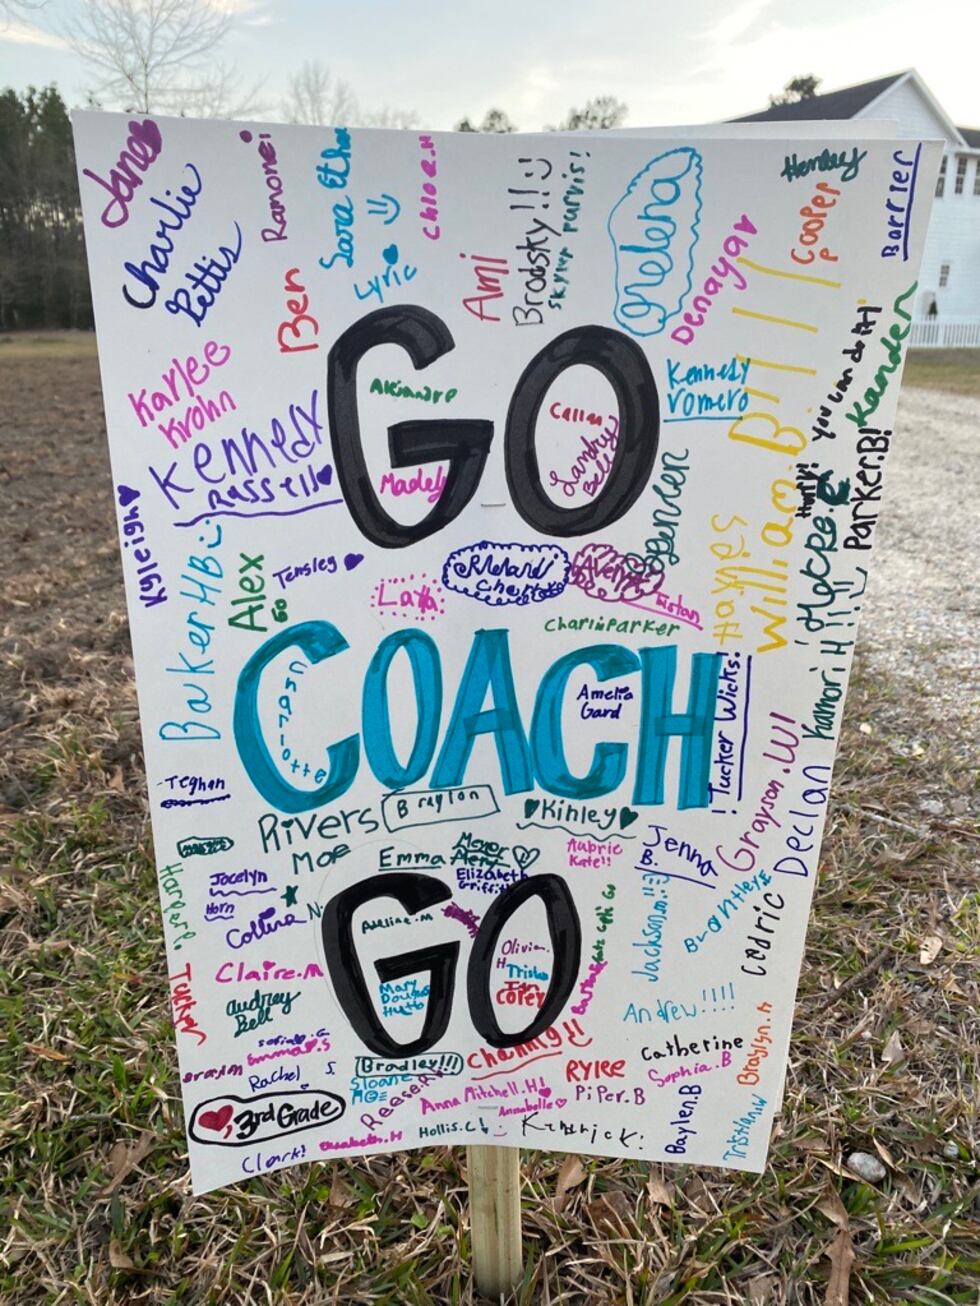 James
Charlie
Pettis
Ramone
Sara Ether
Lyric
Chloe.H
Ami
Brodsky!!
Skyler Purvis!
Denaya
Henley
Cooper
P
Barrier
Ben
Karlee
Krohn
Kennedy
Russell
GO
Madely
Callan
Landry
Bell
Kennedy
romero
Spencer
William.Bill
you can do it!
Kanden
Parker.B!
Kyleigh
BakerHB
Alex
Go
Tensley
Layla
Avery
Tristan
Charli Parker
Haynes
Kamori H!!!
COACH
Charlotte
Amelia
Gard
!Tucker Wicks!
Teghan
Rivers
Moe
Braylon
Kinley
Emma
Elizabeth
Griffith
Aubrie
Kate!!
Jenna
B.
Grayson.W!
Declan
Jocelyn
Horn
Collina
Jackson.m!!
Brantley.E
Cedric
Claire.M
Tucker
Audrey
Bell
GO
Adeline.M
Mary
Douglas
Hutto
Olivia.
H
Tristan
Ian
Corey
Andrew!!!!
Sofia.G
Emma.S
Rachel
Bradley!!!
Channing!!
Rylee
Catherine
Sophia.B
Braylyn.H
Sloane
Moe
Reese.R
Anna Mitchell.H!
Annabelle
Piper.B
Baylen.B
Tristian.W
3rd Grade
Clark!
Elisabeth.H
Hollis.C!
Kendrick!